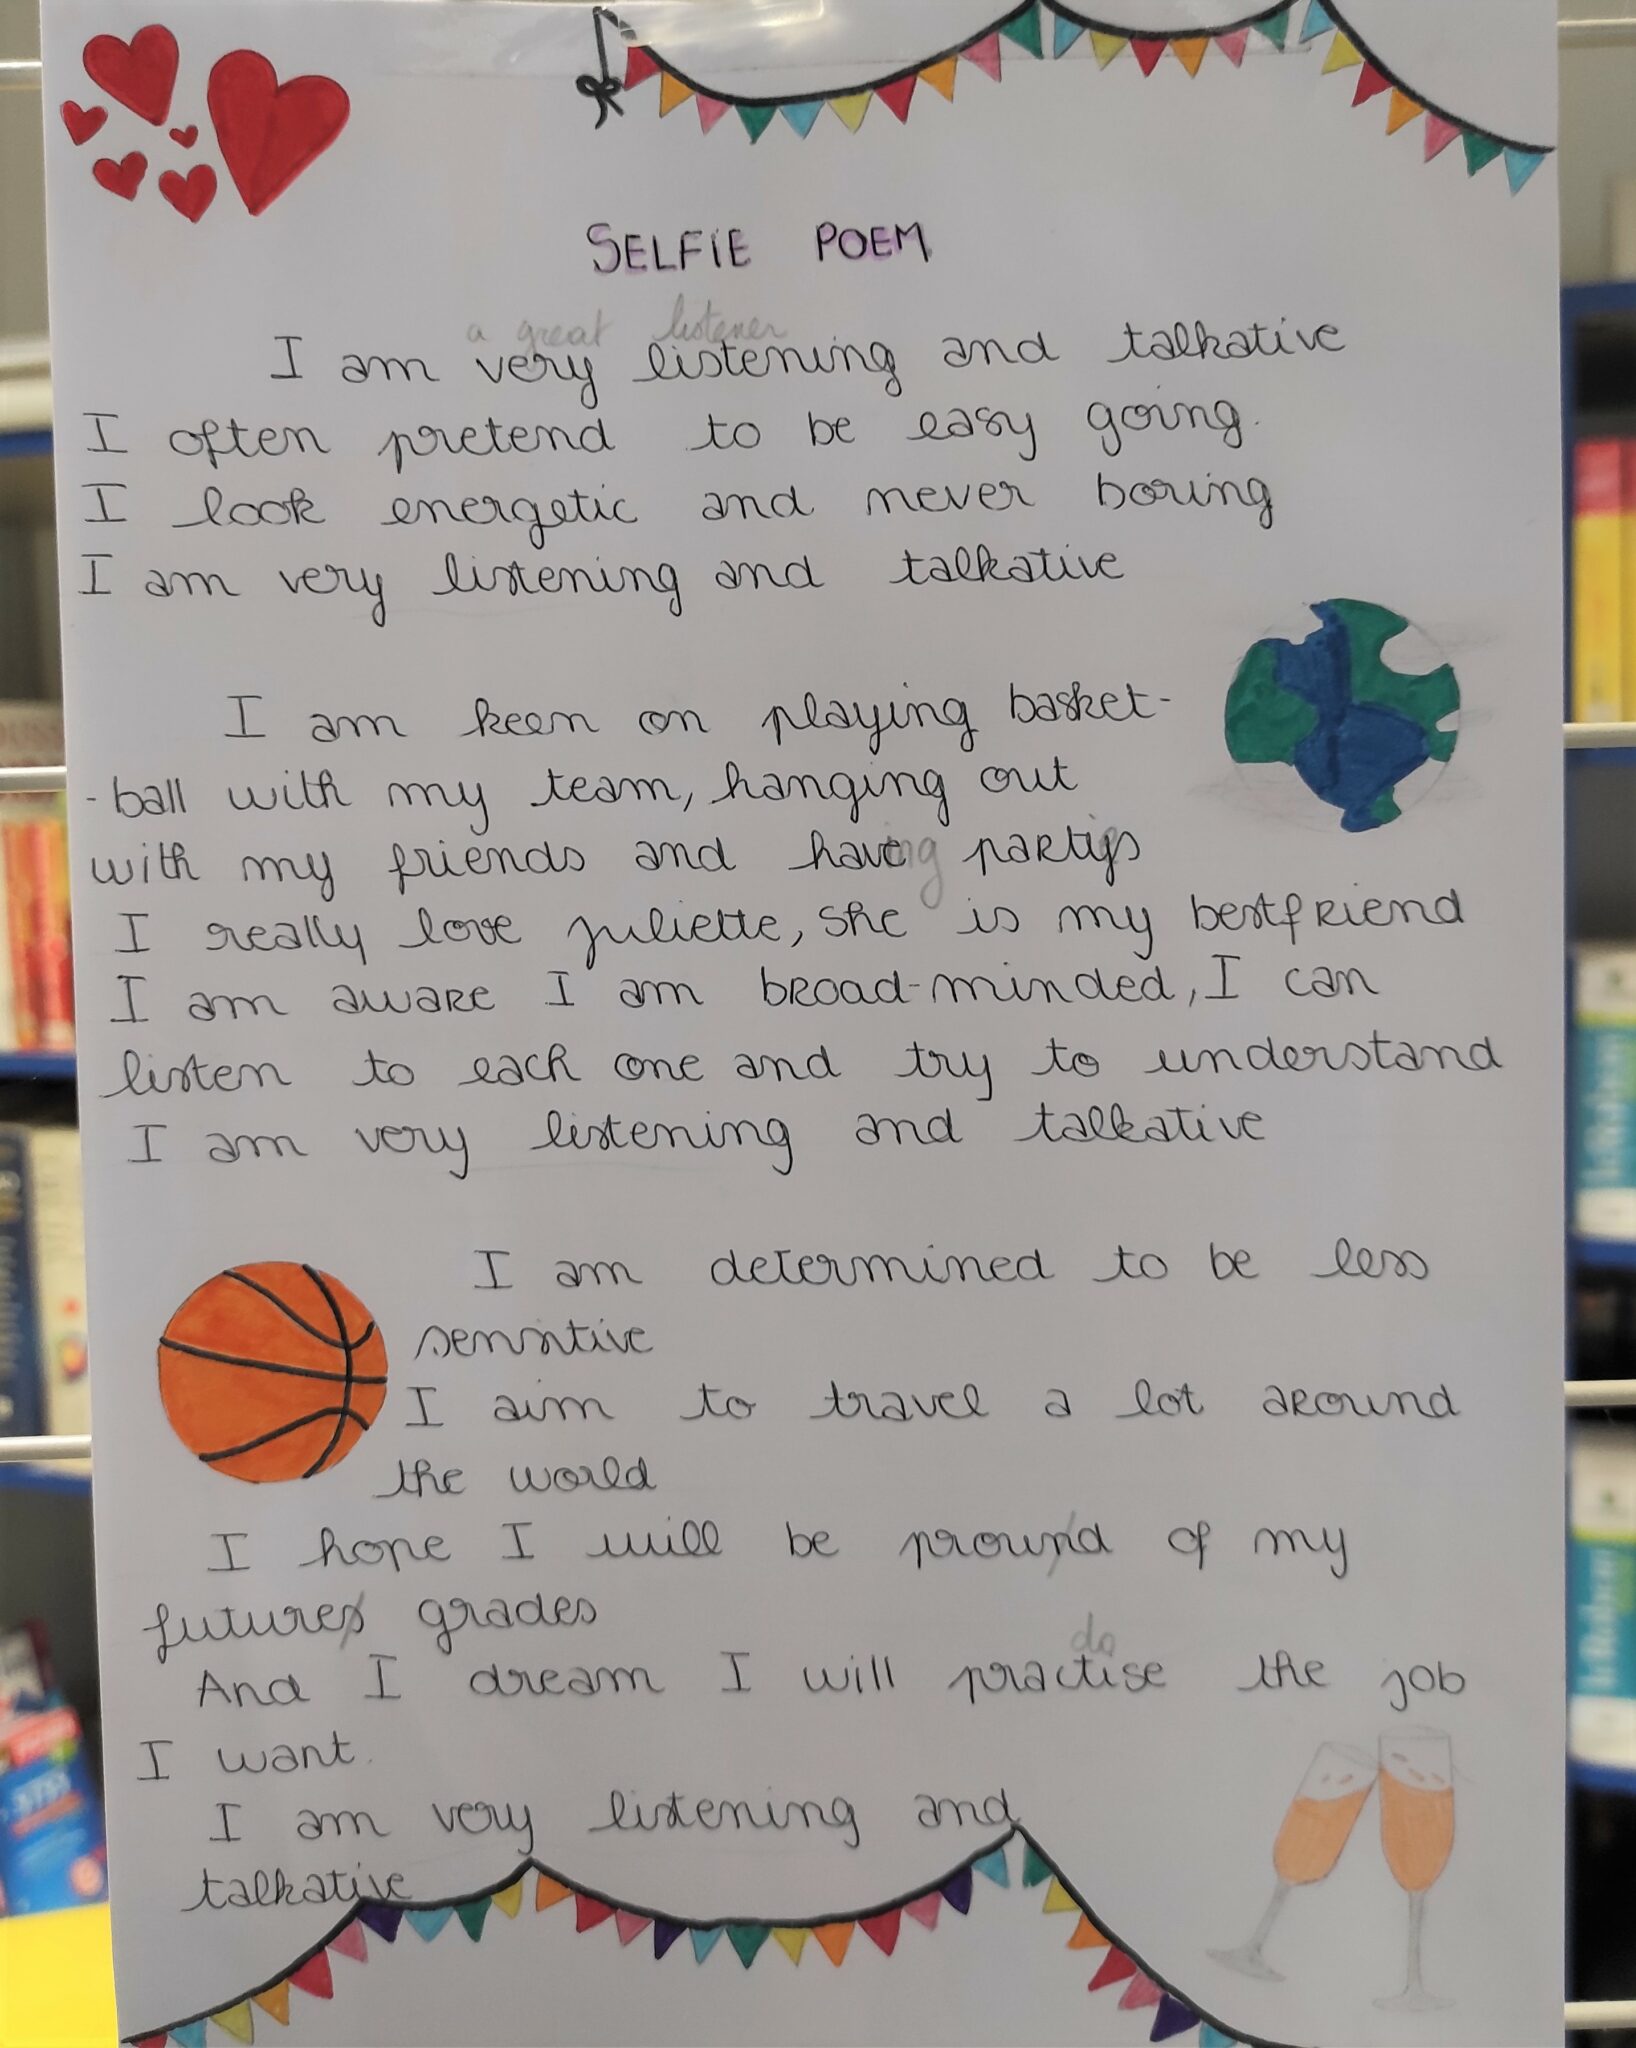 SELFIE POEM
a great listener
I am very listening and talkative
I often pretend to be easy going.
I look energetic and never boring
I am very listening and talkative
I am keen on playing basket-
-ball with my team, hanging out
with my friends and having partys
I really love juliette, she is my bestfriend
I am aware I am broad-minded, I can
listen to each one and try to understand
I am very listening and talkative
I am determined to be less
sensitive
I aim to travel a lot around
the world
I hope I will be pround of my
futures grades
do
And I dream I will practise the job
I want.
I am very listening and
talkative